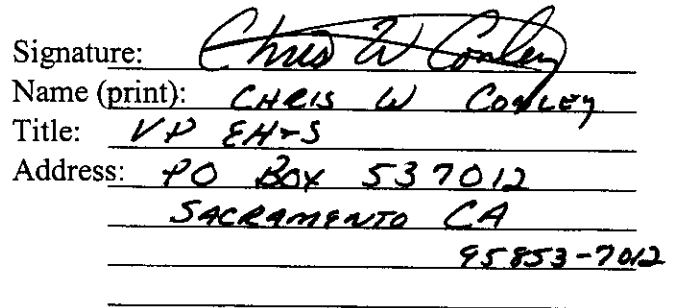 Signature: Chris W Conley
Name (print): CHRIS W CONLEY
Title: VP EH-S
Address: PO BOX 537012
SACRAMENTO CA
95853-7012